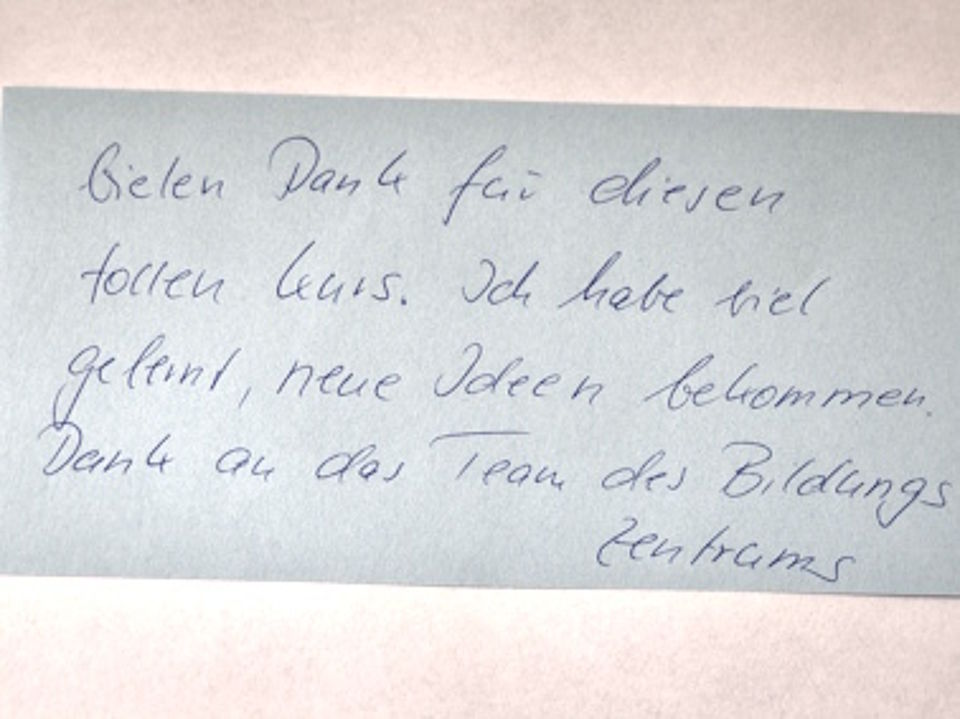 Vielen Dank für diesen
tollen Kurs. Ich habe viel
gelernt, neue Ideen bekommen.
Dank an das Team des Bildungs
zentrums